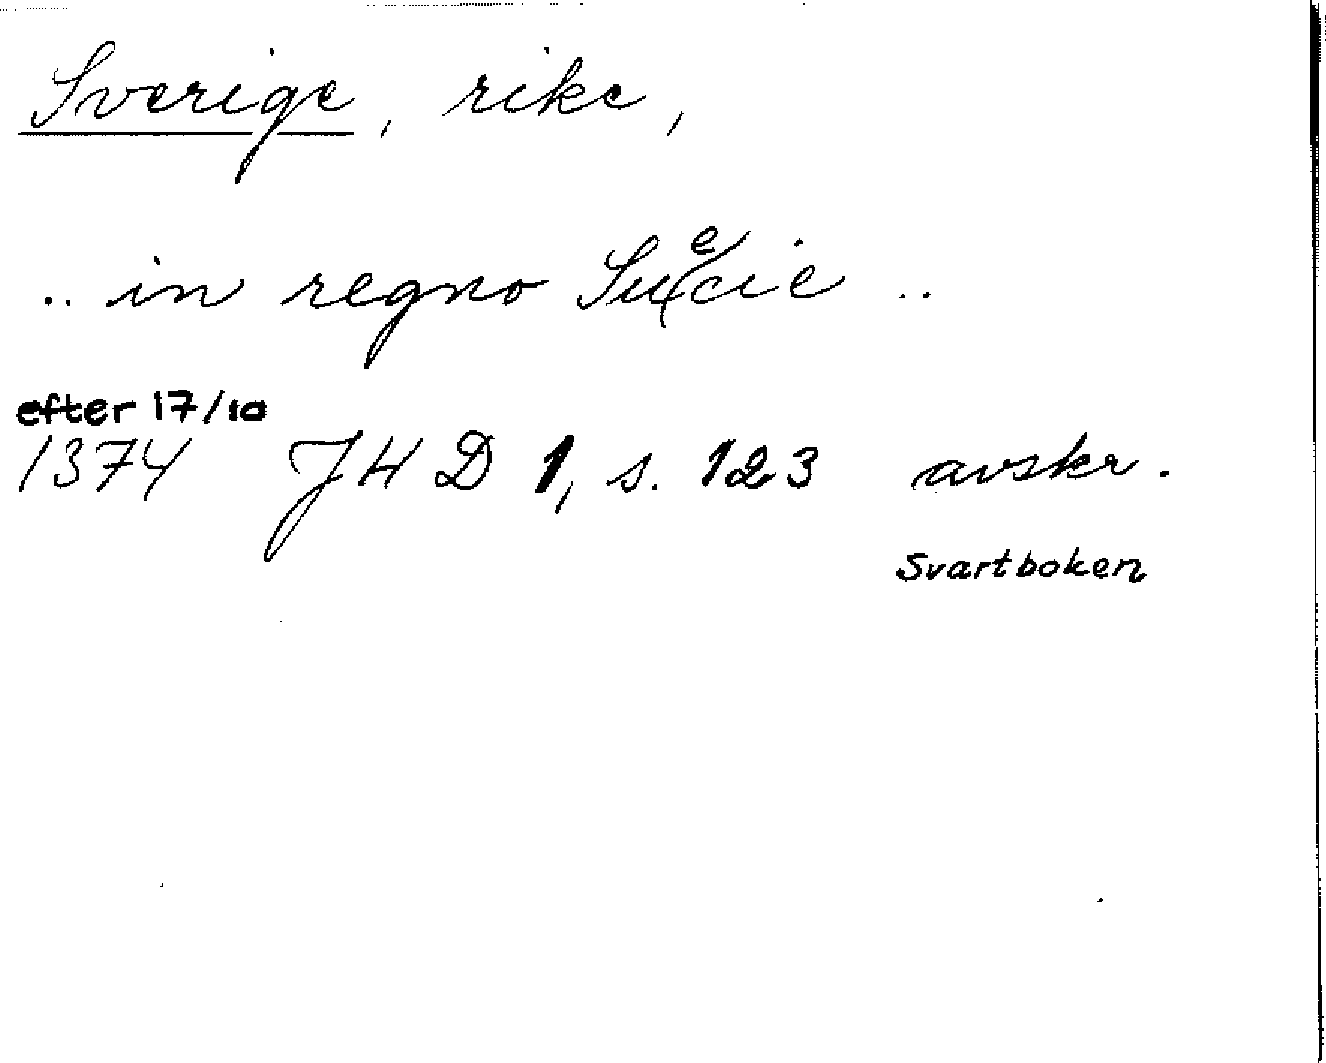 Sverige, rike,
.. in regno Suecie ..
efter 17/10
1374 JHD 1, s. 123 avskr.
Svartboken